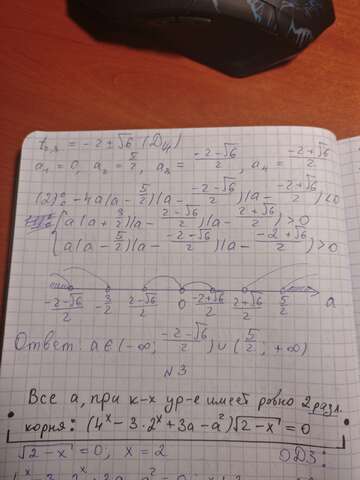 t₁,₂ = -2 ± √6 (D₁/₄)
a₁ = 0, a₂ = 5/2, a₃ = (-2-√6)/2, a₄ = (-2+√6)/2
(2): -4a(a - 5/2)(a - (-2-√6)/2)(a - (-2+√6)/2) < 0
{ a(a + 3/2)(a - (2-√6)/2)(a - (2+√6)/2) > 0
a(a - 5/2)(a - (-2-√6)/2)(a - (-2+√6)/2) > 0
(-2-√6)/2 -3/2 (2-√6)/2 0 (-2+√6)/2 (2+√6)/2 5/2 a
Ответ: a ∈ (-∞, (-2-√6)/2) ∪ (5/2, +∞)
№3
Все a, при к-х ур-е имеет ровно 2 разл.
корня: (4ˣ - 3·2ˣ + 3a - a²)√(2-x) = 0
√(2-x) = 0, x = 2 ОДЗ: